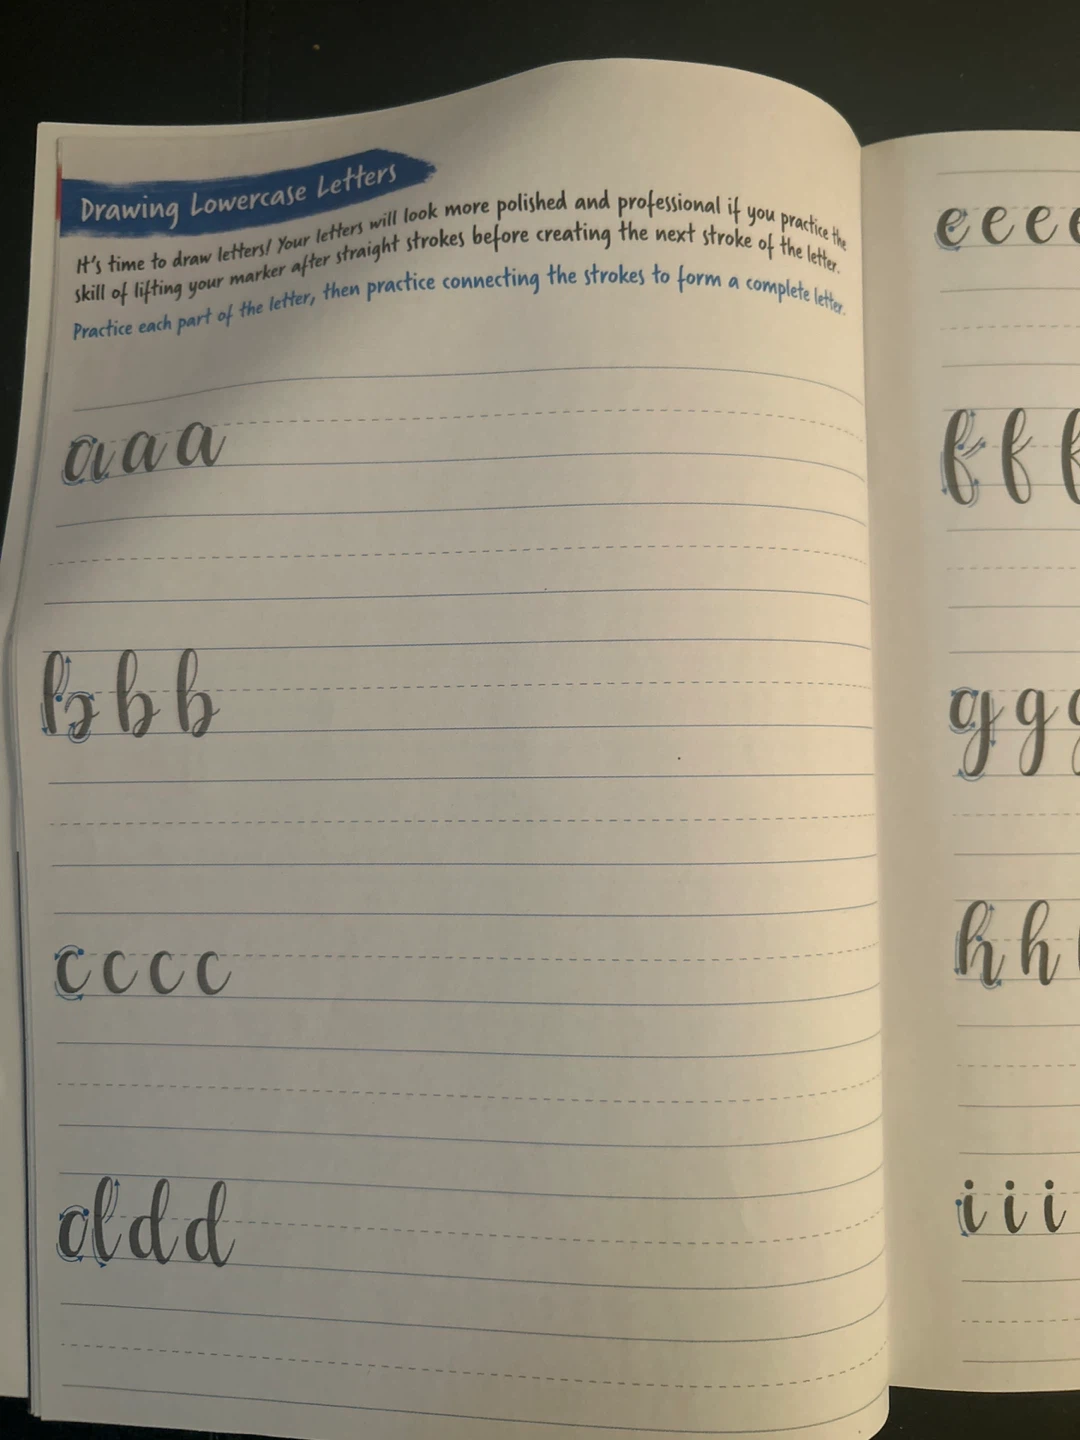 Drawing Lowercase Letters
It's time to draw letters! Your letters will look more polished and professional if you practice the
skill of lifting your marker after straight strokes before creating the next stroke of the letter.
Practice each part of the letter, then practice connecting the strokes to form a complete letter.
a a a
b b b
c c c c
d d d
e e e e
f f f
g g g
h h
i i i